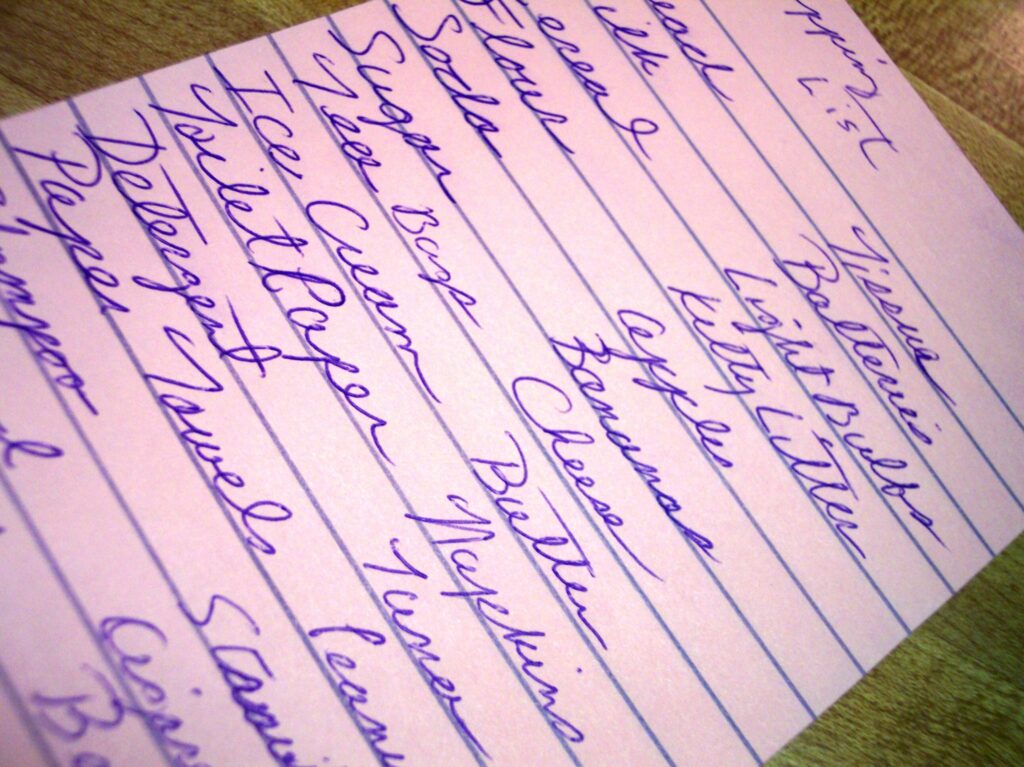 pping List
ead
ilk
ereal
Flour
Soda
Sugar
Tea Bags
Ice Cream
Toilet Paper
Detergent
Paper Towels
Tissue
Batteries
Light Bulbs
Kitty Litter
Apples
Bananas
Cheese
Butter
Napkins
Tuna
Peanu